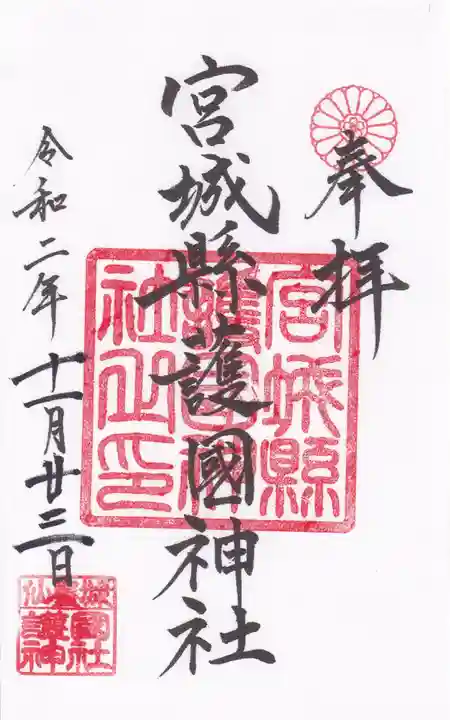 奉拝
宮城縣護國神社
宮城縣
護國神
社之印
令和二年十一月廿三日